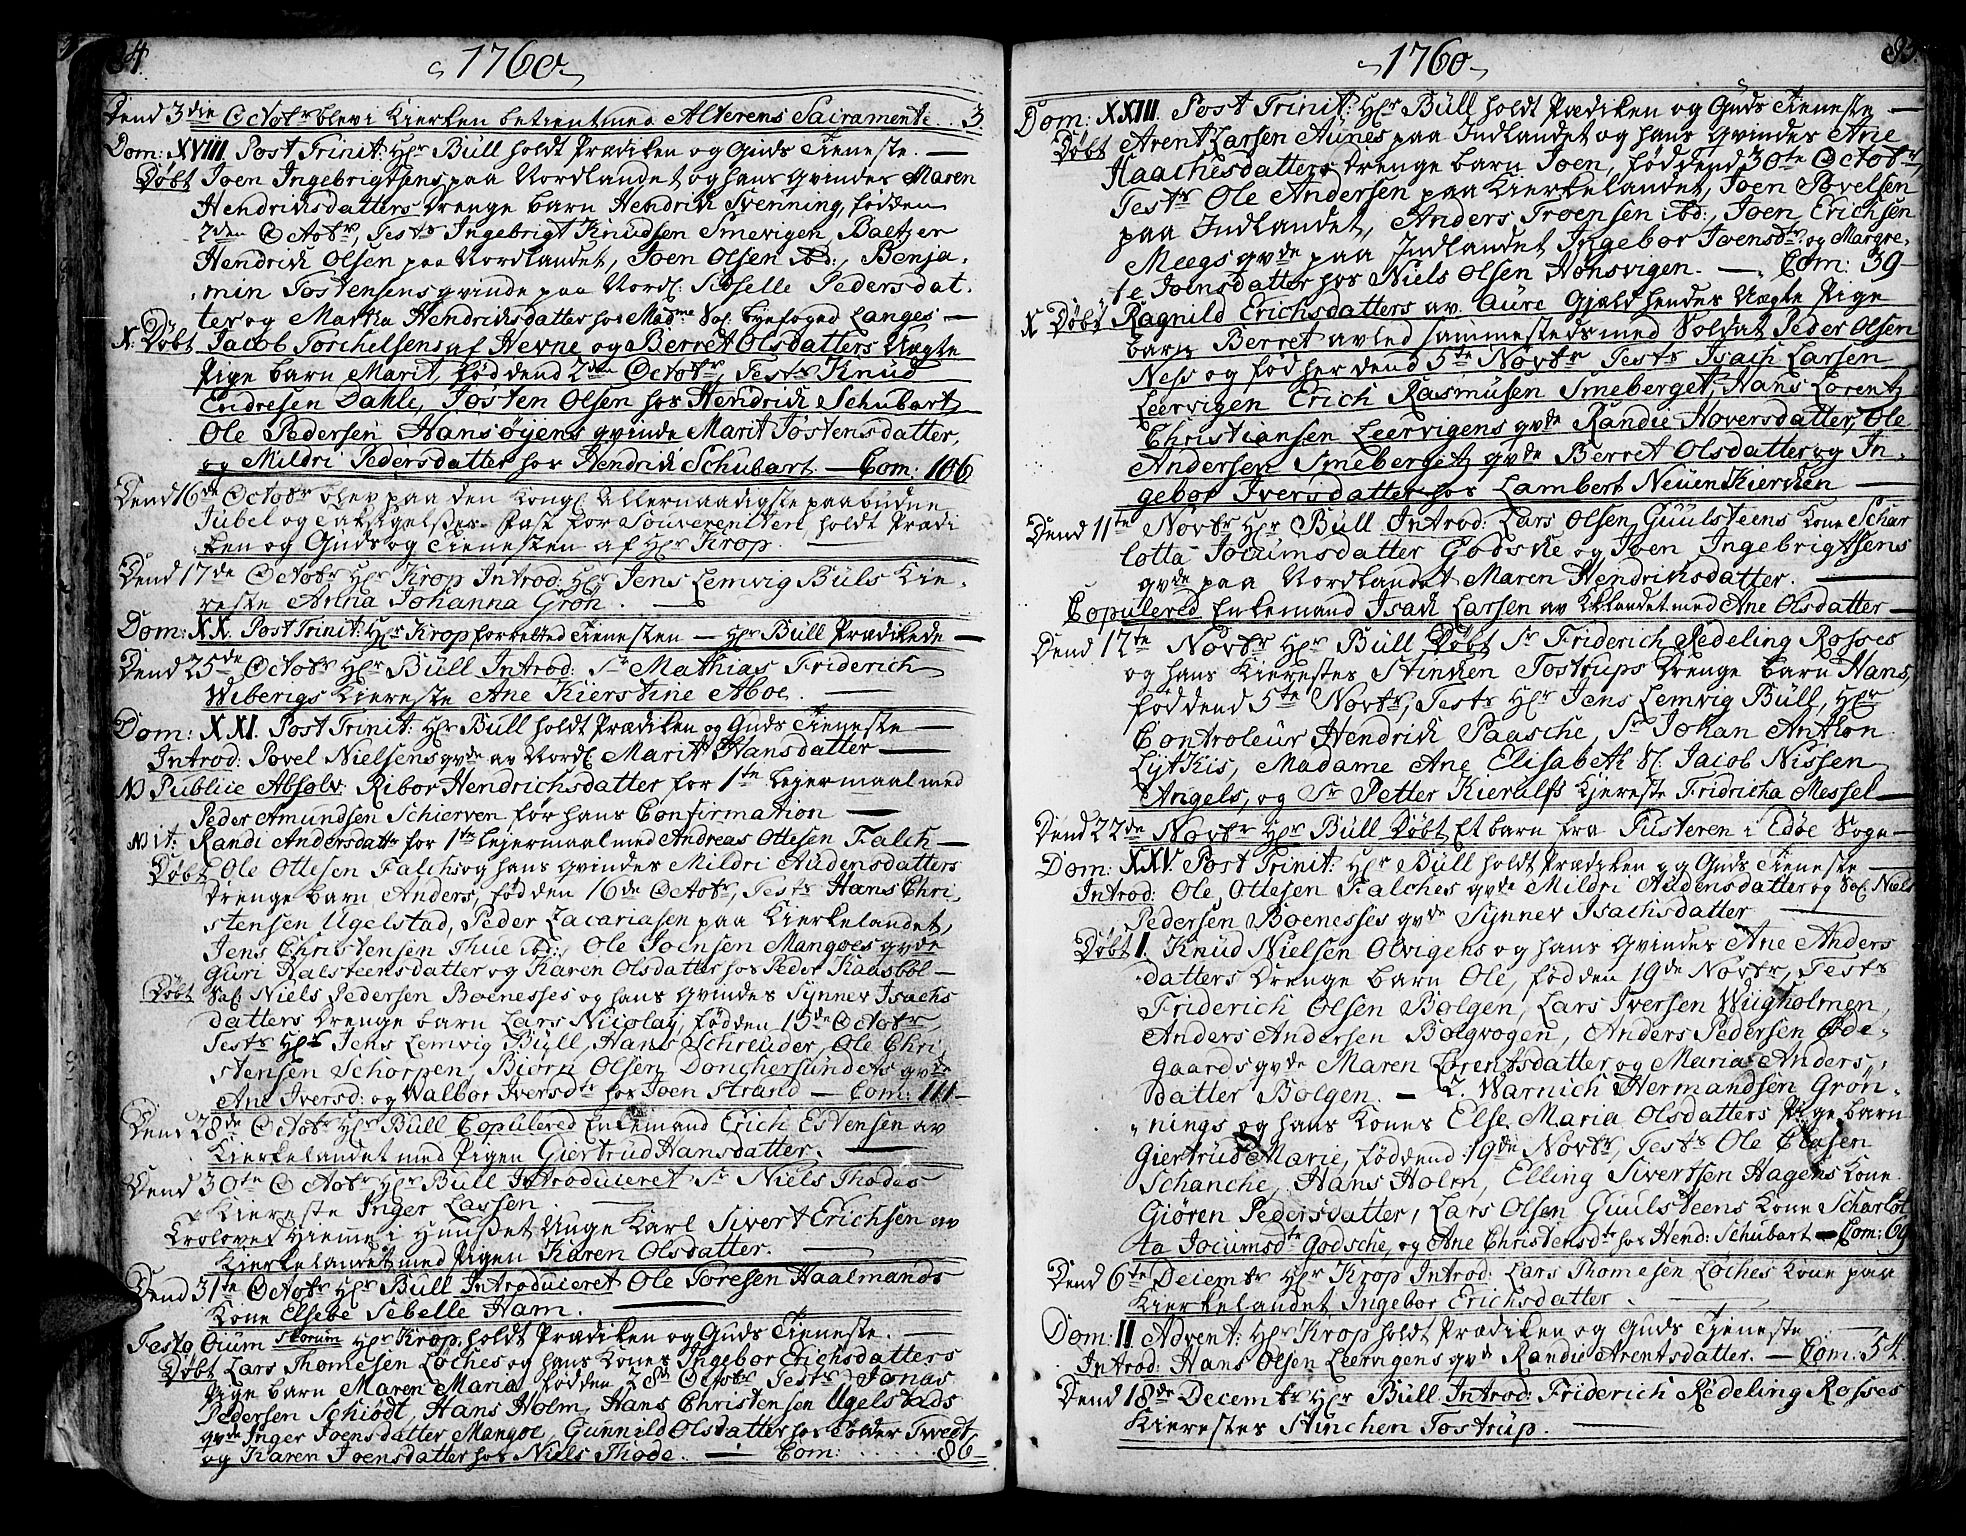 84.
1760
Dend 3die Octobr blev i Kierken betient med Alterens Sacramente .. 3.
Dom: XVIII. Post Trinit: Hr Büll holdt Prædiken og Guds Tieneste. —
Døbt Joen Ingebrigtsens paa Nordlandet og hans Qvindes Maren
Hendrichsdatters Drenge barn Hendrich Svenning, födden
2den Octobr, Tests Ingebrigt Knudsen Smevigen Baltzer
Hendrich Olsen paa Nordlandet, Joen Olsen ibd:, Benja-
min Tostensens qvinde paa Nordl: Siselle Pedersdat-
ter og Martha Hendrichsdatter hos Madme Sal. Byefoged Langes —
N. Døbt Jacob Torchelsens af Hevne og Berret Olsdatters Uægte
Pige barn Marit, föddend 2den Octobr, Tests Knud
Endresen Dahle, Tosten Olsen hos Hendrich Schubart
Ole Pedersen Hansøyens qvinde Marit Tostensdatter,
og Mildri Pedersdatter hos Hendrich Schubart. — Com: 106
Dend 16de Octobr blev paa den Kongl. Allernaadigste paabudne
Jubel og Taksigelses Fast for Souvereniten, holdt Prædi
ken og Guds og Tienesten af Hr Krop. —
Dend 17de Octobr Hr Krop Introd: Hr Jens Lemvig Büls Kie-
reste Anna Johanna Grön. —
Dom: XX. Post Trinit: Hr Krop forretted Tienesten — Hr Büll Prædikede —
Dend 25de Octobr Hr Büll Introd: Sr Mathias Friderich
Wibergs Kiereste Ane Kierstine Aboe. —
Dom: XXI. Post Trinit: Hr Büll holdt Prædiken og Guds Tieneste —
Introd: Povel Nielsens qvde av Nordl. Marit Hansdatter —
N Publice Absolv. Ribor Hendrichsdatter for 1te Lejermaal med
Peder Amundsen Schierven for hans Confirmation —
N it: Randi Andersdattr for 1te Lejermaal med Andreas Ottesen Falch —
Døbt Ole Ottesen Falchs og hans qvindes Mildri Audensdatters
Drenge barn Anders, födden 16de Octobr, Tests Hans Chri-
stensen Ugelstad, Peder Zacariasen paa Kierkelandet,
Jens Christensen Thue ibd:, Ole Joensen Mangoes qvde
Guri Halsteensdatter og Karen Olsdatter hos Peder Kaasböl —
Døbt Sal. Niels Pedersen Boenesses og hans qvindes Synnev Isachs
datters Drenge barn Lars Nicolaj, födden 15de Octobr,
Tests Hr Jens Lemvig Büll, Hans Schreuder, Ole Chri
stensen Schorpen, Biörn Olsen Donchersundets qvde
Ane Iversd: og Walbor Iversdtr hos Joen Strand — Com: 111 —
Dend 28de Octobr Hr Büll Copulered Enkemand Erich Estensen av
Kierkelandet med Pigen Giertrud Hansdatter. —
Dend 30te Octobr Hr Büll Introduceret Sr Niels Thodes
Kiereste Inger Lassen —
Trolovet Hieme i Hunset Unge Karl Sivert Erichsen av
Kierkelandet med Pigen Karen Olsdatter. —
Dend 31te Octobr Hr Büll Introduceret Ole Toresen Haalmands
Kone Elsebe Sebelle Ham. —
Festo Oium Storum Hr Krop holdt Prædiken og Guds Tieneste. —
Døbt Lars Thomesen Løches og hans Kones Ingebor Erichsdatters
Pige barn Maren Maria födden 28de Octobr Tests Jonas
Pedersen Schiödt, Hans Holm, Hans Christensen Ugelstads
qvde Inger Joensdatter Mangoe, Gunnild Olsdatter hos Tolder Tvedt,
og Karen Joensdatter hos Niels Thode. — Com: 86
85.
1760
Dom: XXIII. Post Trinit: Hr Büll holdt Prædiken og Guds Tieneste —
Døbt Arent Larsen Aunes paa Indlandet og hans Qvindes Ane
Haachesdatters Drenge barn Joen, föddend 30te Octobr,
Tests Ole Andersen paa Kierkelandet, Joen Povelsen
paa Indlandet, Anders Troensen ibd:, Joen Erichsen
Meegs qvde paa Indlandet Ingebor Joensdr og Margre-
te Joensdatter hos Niels Olsen Honsvigen. — Com: 39 —
N Døbt Ragnild Erichsdatters av Aure Gjæld hendes Uægte Pige
barn Berret avled sammesteds med Soldat Peder Olsen
Ness og född her dend 5te Novbr Tests Isach Larsen
Leervigen Erich Rasmusen Smeberget, Hans Lorentz
Christiansen Leervigens qvde Randie Hoversdatter, Ole
Andersen Smebergetz qvde Berret Olsdatter og In-
gebor Iversdatter hos Lambert Neuenkierchen —
Dend 11te Novbr Hr Büll Introd: Lars Olsen Guulsteens Kone Schar
lotta Jocumsdatter Godske og Joen Ingebrigtsens
qvde paa Nordlandet Maren Hendrichsdatter. —
Copulered Enkemand Isach Larsen av Kklandet med Ane Olsdatter —
Dend 12te Novbr Hr Büll Døbt Sr Friderich Redeling Rosses
og hans Kierestes Stinken Tostrups Drenge barn Hans,
föddend 5te Novbr, Tests Hr Jens Lemvig Büll, Hr
Controleur Hendrich Paasche, Sr Johan Anthon
Lytkis, Madame Ane Elisabeth Sl. Jacob Nissen
Angels, og Sr Petter Kierulfs Kjereste Fridricha Messel —
Dend 22de Novbr Hr Büll Døbt Et barn fra Tusteren i Edøe Sogn —
Dom: XXV. Post Trinit: Hr Büll holdt Prædiken og Guds Tieneste —
Introd: Ole Ottesen Falches qvde Mildri Audensdatter og Sal. Niels
Pedersen Boenesses qvde Synnev Isachsdatter —
Døbt 1. Knud Nielsen Olvigens og hans Qvindes Ane Anders
datters Drenge barn Ole, födden 19de Novbr, Tests
Friderich Olsen Bolgen, Lars Iversen Wiigholmen,
Anders Andersen Bolgvogen, Anders Pedersen Øde-
gaards qvde Maren Lorentsdatter og Maria Anders
datter Bolgen. — 2. Warnich Hermandsen Grøn-
nings og hans Kones Else Maria Olsdatters Pige barn
Giertrud Marie, föddend 19de Novbr, Tests Ole Clasen
Schanche, Hans Holm, Elling Sivertsen Hagens Kone
Giören Pedersdatter, Lars Olsen Guulsteens Kone Scharlot
ta Jocumsdtr Godsche, og Ane Christensdtr hos Hend: Schubart — Com: 69
Dend 6te Decembr Hr Krop Introd: Lars Thomesen Løches Kone paa
Kierkelandet Ingebor Erichsdatter —
Dom: II Advent: Hr Krop holdt Prædiken og Guds Tieneste —
Introd: Hans Olsen Leervigens qvde Randie Arentsdatter. — Com: 54.
Dend 18de Decembr Hr Büll Introd: Friderich Redeling Rosses
Kierestes Stinchen Tostrup. —